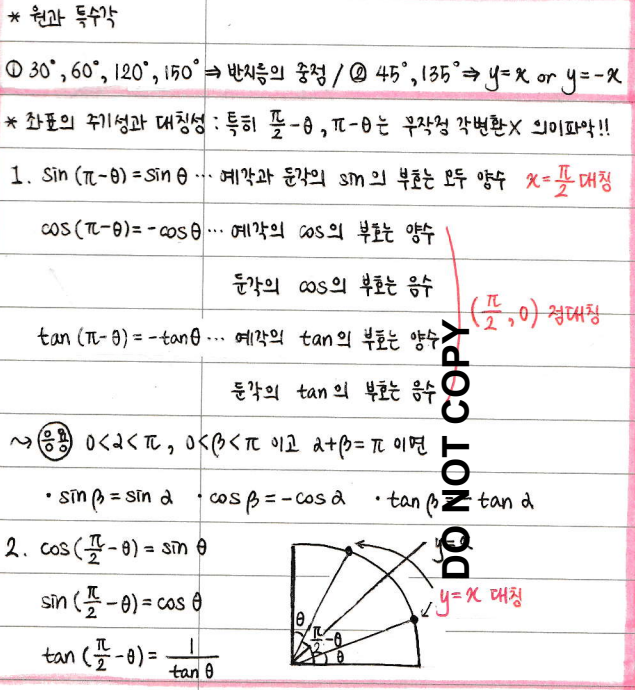 * 원과 특수각
① 30°, 60°, 120°, 150° ⇒ 반지름의 중점 / ② 45°, 135° ⇒ y=x or y=-x
* 좌표의 주기성과 대칭성 : 특히 π/2-θ, π-θ는 무작정 각변환X 의미파악!!
1. sin(π-θ)=sinθ ··· 예각과 둔각의 sin의 부호는 모두 양수 x=π/2 대칭
cos(π-θ)=-cosθ ··· 예각의 cos의 부호는 양수
둔각의 cos의 부호는 음수
(π/2, 0) 점대칭
tan(π-θ)=-tanθ ··· 예각의 tan의 부호는 양수
둔각의 tan의 부호는 음수
~> 응용 0<α<π, 0<β<π 이고 α+β=π 이면
· sinβ=sinα · cosβ=-cosα · tanβ tanα
2. cos(π/2-θ)=sinθ
sin(π/2-θ)=cosθ
tan(π/2-θ)=1/tanθ
y=x 대칭
θ
π/2-θ
θ
DO NOT COPY